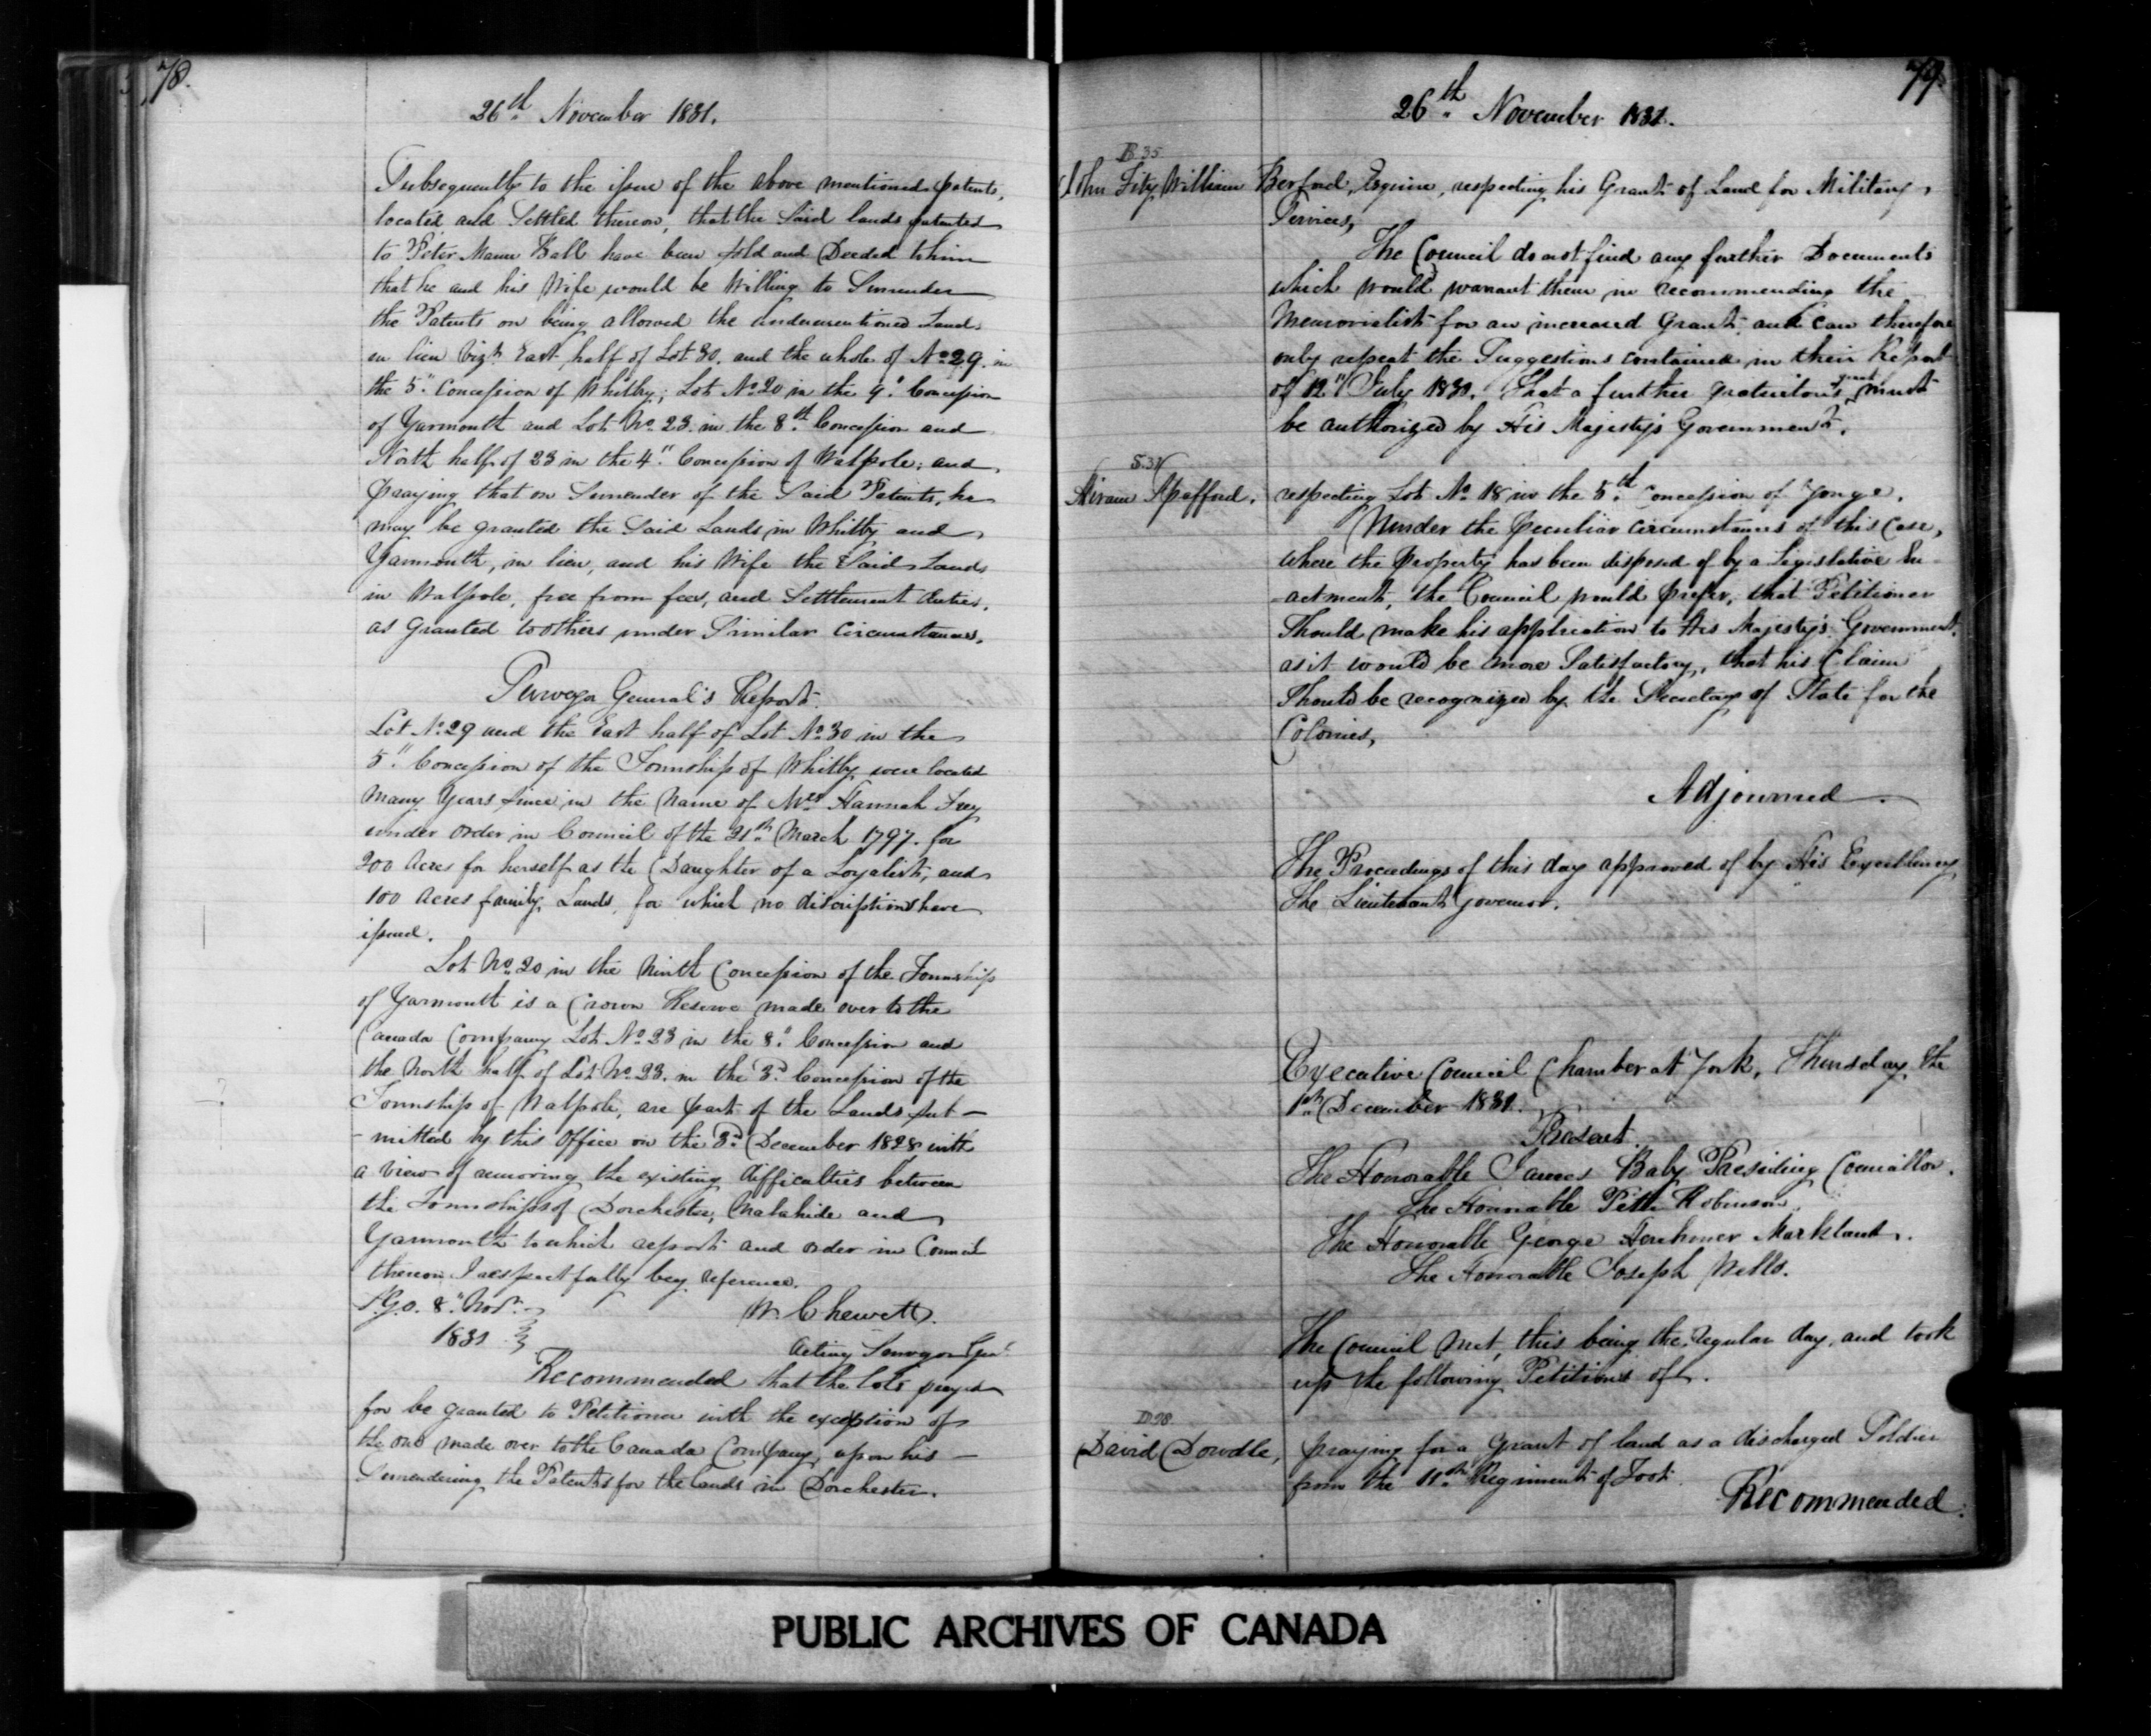 78.
26th November 1831.
Subsequently to the issue of the above mentioned patents,
located and Settled thereon, that the Said lands patented
to Peter Mann Ball have been sold and Deeded to him
that he and his Wife would be Willing to Surrender
the Patents on being allowed the undermentioned Lands
in lieu Vizt East half of Lot 30. and the whole of No 29. in
the 5" Concession of Whitby; Lot No 20 in the 9" Concession
of Yarmouth and Lot No 23 in the 8th Concession and
North half of 23 in the 4" Concession of Walpole; and
praying that on Surrender of the Said Patents, he
may be granted the Said Lands in Whitby and
Yarmouth, in lieu, and his Wife the Said Lands
in Walpole, free from fees, and Setttlement duties,
as Granted to others under Similar Circumstances.
Surveyor General's Report.
Lot No 29 and the East half of Lot No 30 in the
5" Concession of the Township of Whitby were located
many Years since in the Name of Mrs Hannah Frey
under order in Council of the 31th March 1797. for
200 Acres for herself as the Daughter of a Loyalist, and
100 Acres family Lands, for which no discriptions have
issued.
Lot No 20 in the Ninth Concession of the Township
of Yarmouth is a Crown Reserve made over to the
Canada Company Lot No 23 in the 8" Concession and
the North half of Lot No 23. in the 3d Concession of the
Township of Walpole, are part of the Lands sub-
-mitted by this Office on the 3d December 1828 with
a view of removing the existing difficulties between
the Townships of Dorchester, Malahide and
Yarmouth to which report and order in Council
thereon I respectfully beg reference.
S.G.O. 8" Novr.
1831
W. Chewett.
Acting Surveyor Genl
Recommended that the lots prayed
for be granted to Petitioner with the exception of
the one made over to the Canada Company, upon his -
Surrendering the Patents for the lands in Dorchester.
79
26th November 1831.
B. 35
John Fitz William Berford, Esquire, respecting his Grant of Land for Military
Services,
The Council do not find any further Documents
which would warrant them in recommending the
Memorialist for an increased Grant, and can therefore
only repeat the Suggestions contained in their Report
of 12" July 1831. That a further gratuitous grant must
be authorized by His Majesty's Government.
S. 31
Hiram Spafford. respecting Lot No 18 in the 5th Concession of Yonge.
Under the peculiar circumstances of this Case,
where the property has been disposed of by a Legislative En
-actment, the Council would prefer, that Petitioner
Should make his application to His Majesty's Government,
as it would be more Satisfactory, that his Claim
Should be recognized by the Secretary of State for the
Colonies,
Adjourned
The Proceedings of this day approved of by His Excellency
The Lieutenant Governor.
Executive Council Chamber at York, Thursday, the
1st December 1831.
Present
The Honorable James Baby Presiding Councillor.
The Honorable Peter Robinson
The Honorable George Herchmer Markland.
The Honorable Joseph Wells.
The Council Met, this being the regular day, and took
up the following Petitions of.
D. 28
David Dowdle, praying for a Grant of land as a discharged Soldier
from the 11th Regiment of Foot
Recommended.
PUBLIC ARCHIVES OF CANADA